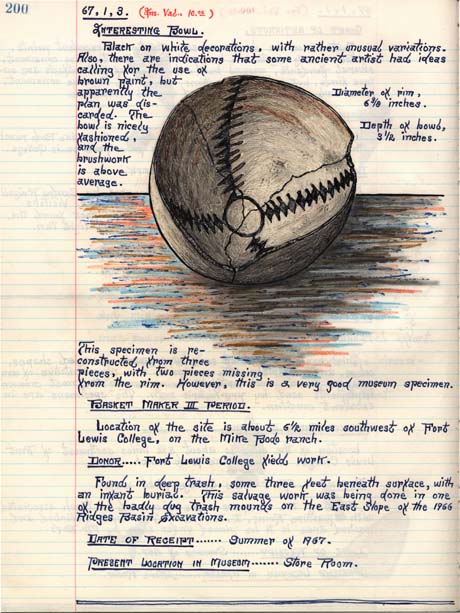 200
67.1.3. (Am. Val., 10.00)
INTERESTING BOWL.
Black on white decorations, with rather unusual variations.
Also, there are indications that some ancient artist had ideas
calling for the use of
brown paint, but
apparently the
plan was dis-
carded. The
bowl is nicely
fashioned,
and the
brushwork
is above
average.
Diameter of rim,
6⅝ inches.
Depth of bowl,
3½ inches.
This specimen is re-
constructed from three
pieces, with two pieces missing
from the rim. However, this is a very good museum specimen.
BASKET MAKER III PERIOD.
Location of the site is about 6½ miles southwest of Fort
Lewis College, on the Mike Bodo ranch.
DONOR..... Fort Lewis College field work.
Found in deep trash, some three feet beneath surface, with
an infant burial. This salvage work was being done in one
of the badly dug trash mounds on the East Slope of the 1966
Ridges Basin Excavations.
DATE OF RECEIPT....... Summer of 1967.
PRESENT LOCATION IN MUSEUM....... Store Room.